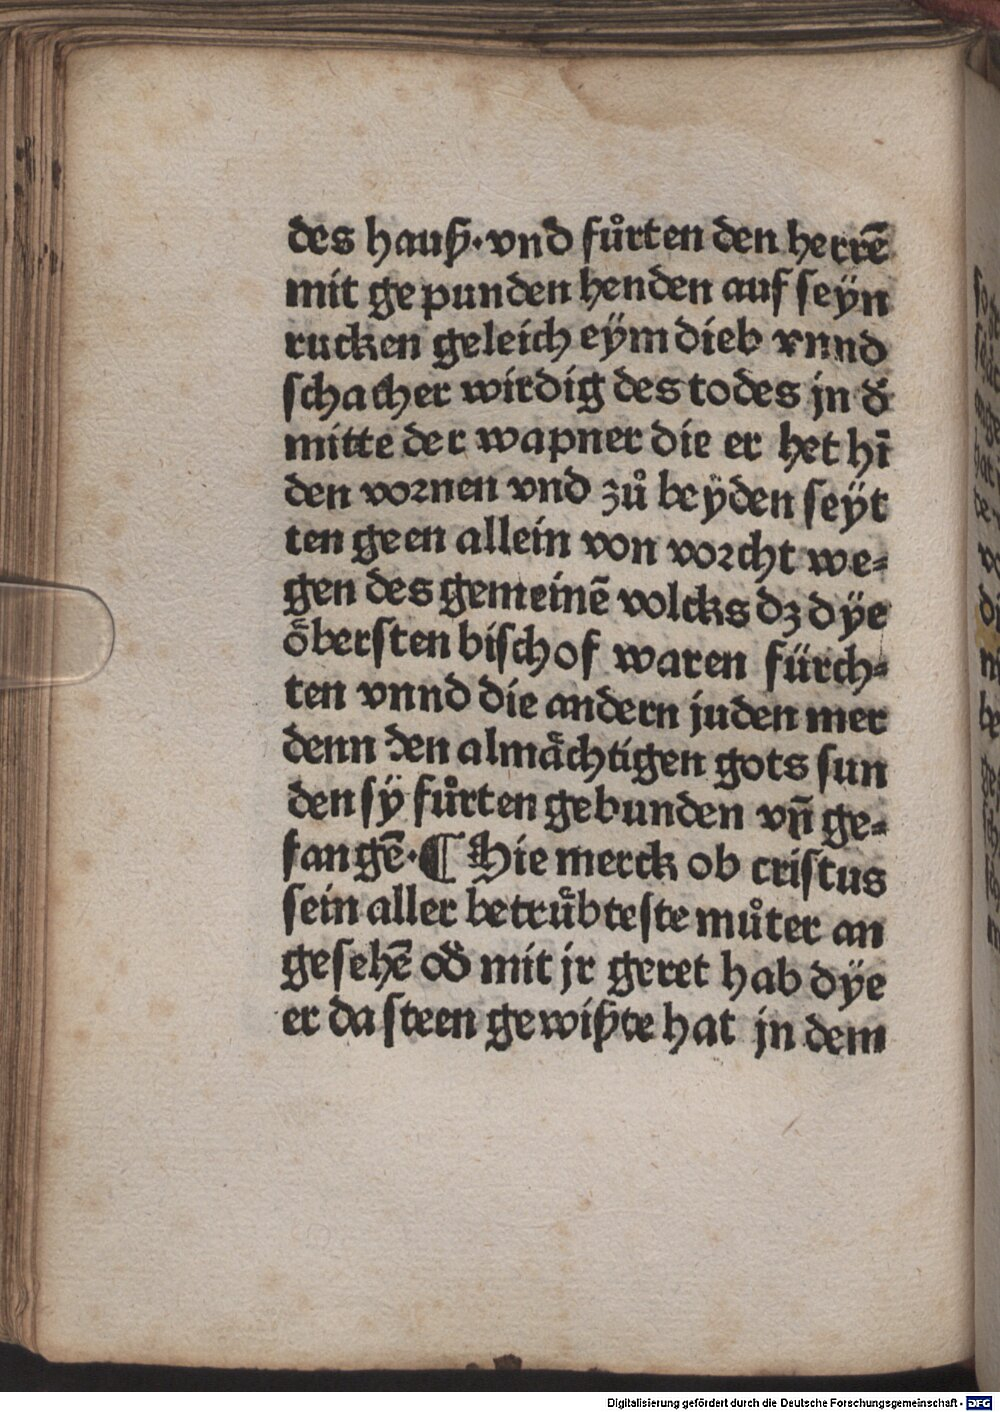 des hauß·vnd fůrten den herrē
mit gepunden henden auf seÿn
rucken geleich eÿm dieb vnnd
schacher wirdig des todes jn d̄
mitte der wapner die er het hī
den vornen vnd zů beÿden seÿt
ten geen allein von vorcht we⸗
gen des gemeinē volcks dz dÿe
oͤbersten bischof waren fürch⸗
ten vnnd die andern juden mer
denn den almaͤchtigen gots sun
den sÿ fůrten gebunden vn̄ ge⸗
fangē·¶ Hie merck ob cristus
sein aller betruͤbteste můter an
gesehē od̄ mit jr geret hab dÿe
er da steen gewißte hat jn dem
Digitalisierung gefördert durch die Deutsche Forschungsgemeinschaft - DFG